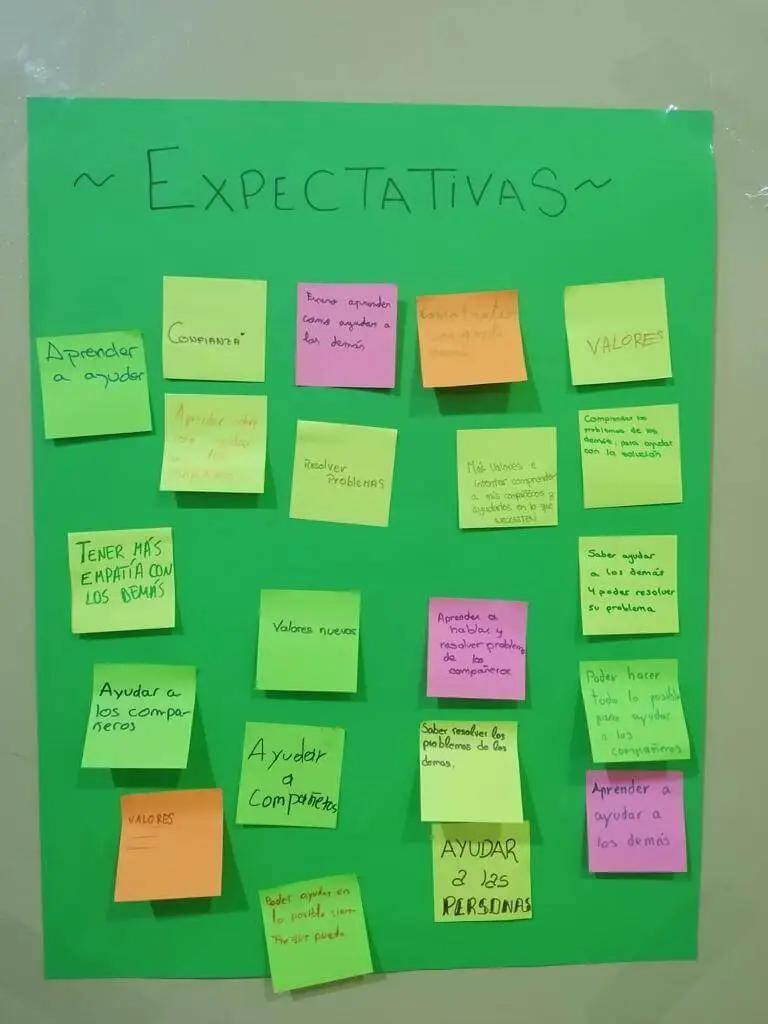 ~ EXPECTATIVAS ~
Aprender
a ayudar
CONFIANZA
Espero aprender
como ayudar a
los demás
VALORES
Aprender
a los
RESOLVER
PROBLEMAS
Más valores e
intentar comprender
a mis compañeros y
ayudarlos en lo que
NECESITEN
Comprender los
problemas de los
demás, para ayudar
con la solución
TENER MÁS
EMPATÍA CON
LOS DEMÁS
Valores nuevos
Aprender a
hablar y
resolver problemas
de los
compañeros
Saber ayudar
a los demás
y poder resolver
su problema
Ayudar a
los compa-
ñeros
Ayudar
a
Compañeros
Saber resolver los
problemas de los
demas.
Poder hacer
todo lo posible
para ayudar
a los
compañeros
VALORES
AYUDAR
a las
PERSONAS
Aprender a
ayudar a
los demás
Poder ayudar en
lo posible siem
pre que pueda